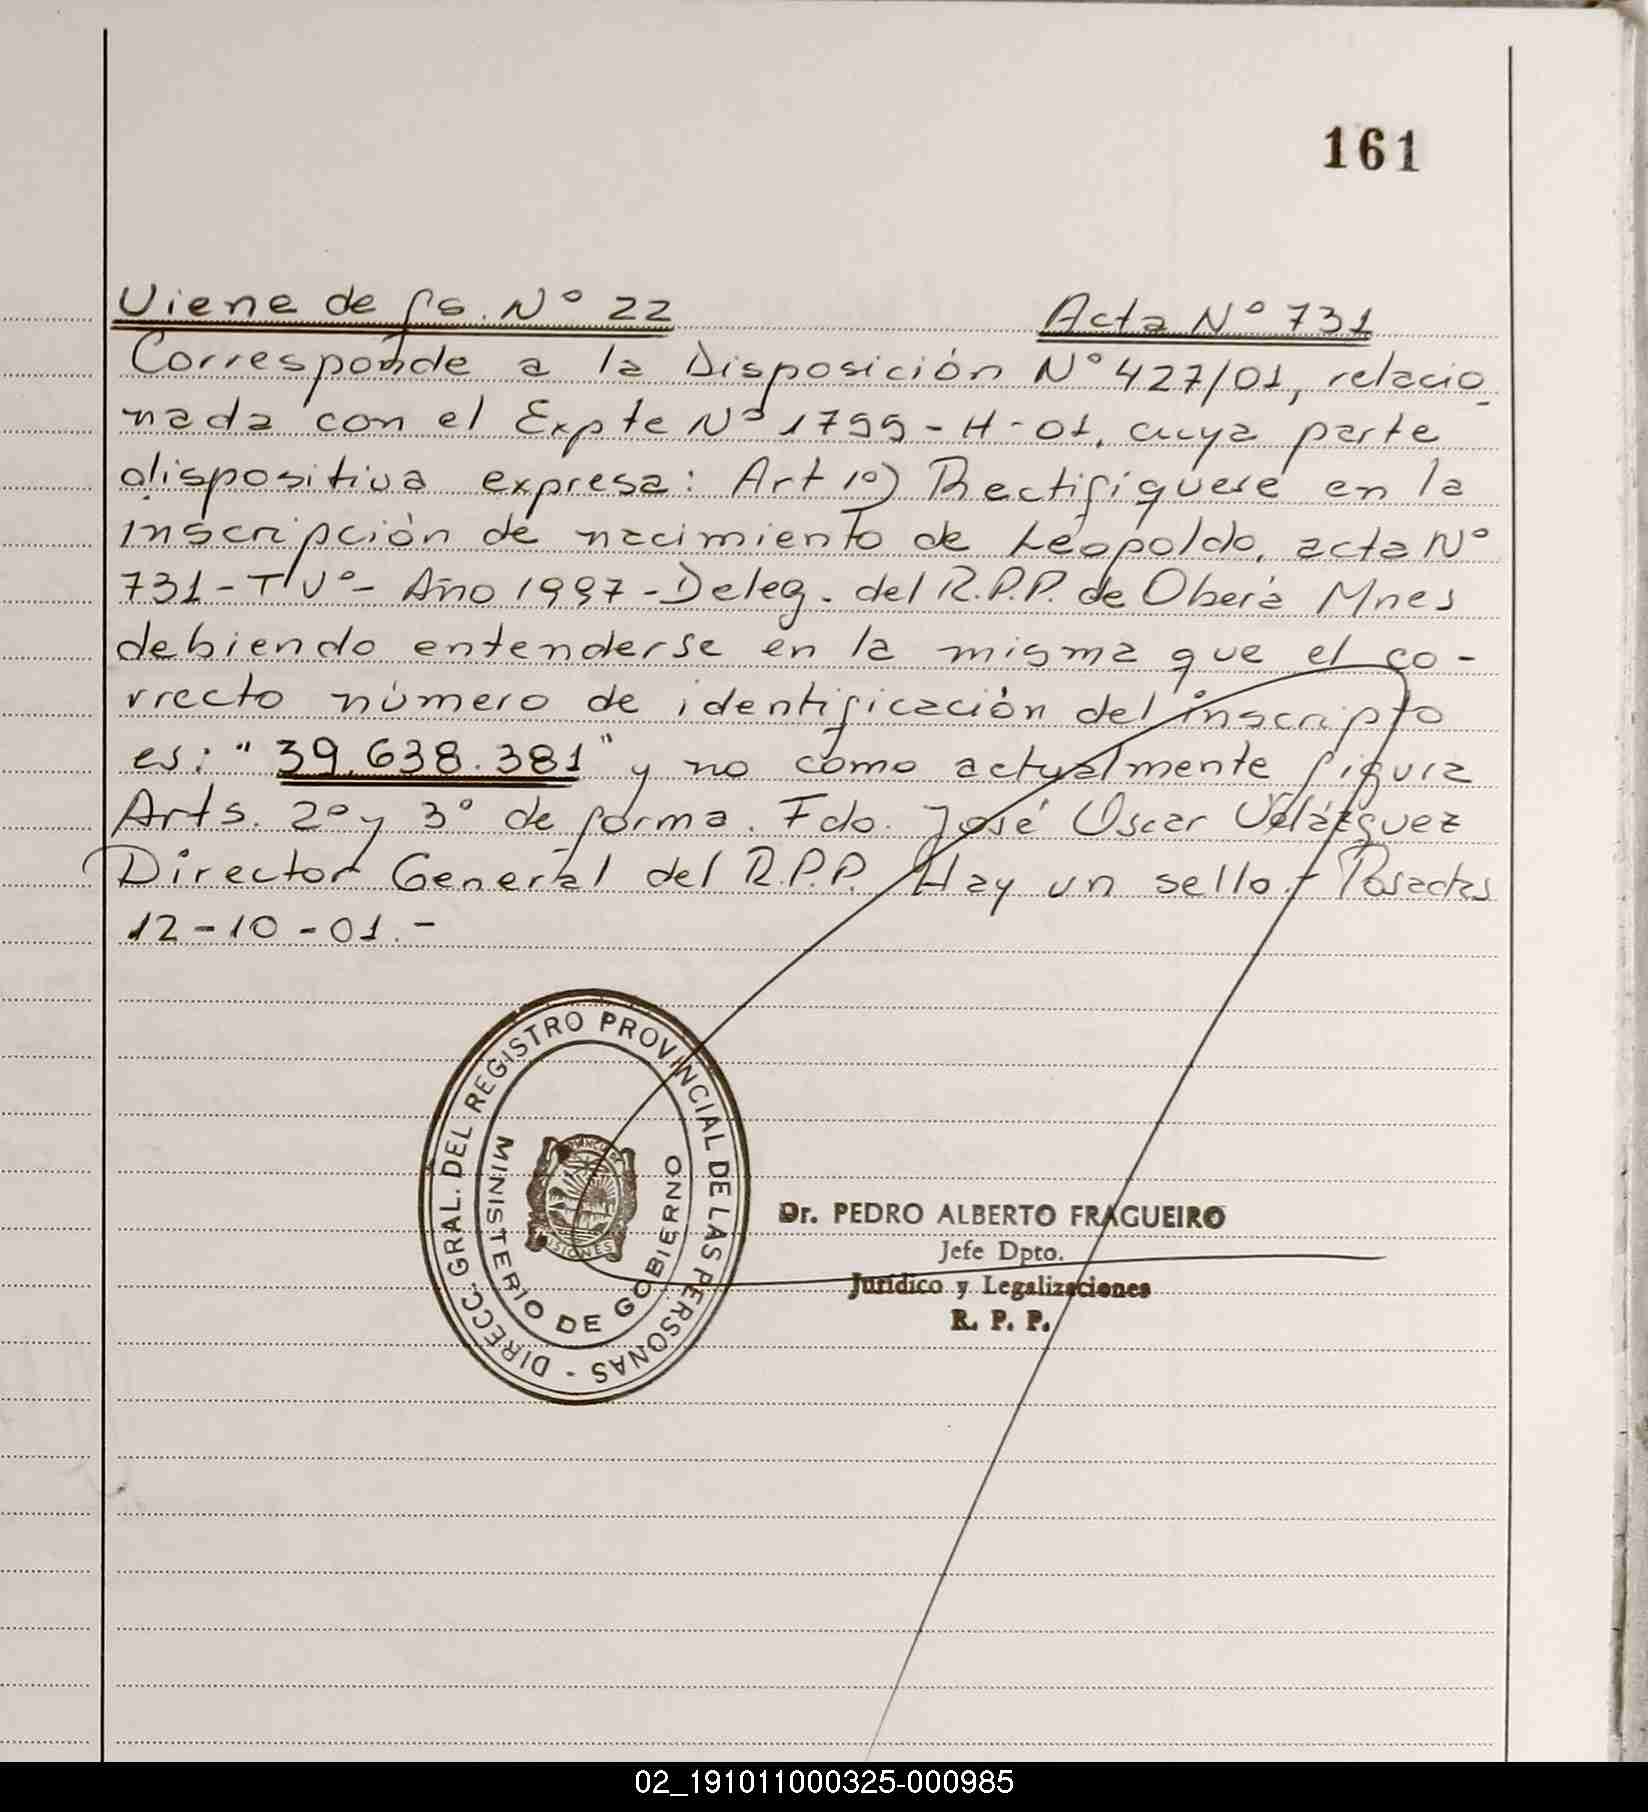 161
Viene de fs. Nº 22 Acta Nº 731
Corresponde a la Disposición Nº 427/01, relacio
nada con el Expte Nº 1799-H-01. cuya parte
dispositiva expresa: Art 1º) Rectifíquese en la
inscripción de nacimiento de Leopoldo, acta Nº
731 - Tº Vº - Año 1997 - Deleg. del R.P.P. de Oberá Mnes
debiendo entenderse en la misma que el co-
rrecto número de identificación del inscripto
es: "39.638.381" y no como actualmente figura
Arts. 2º y 3º de forma. Fdo. José Oscar Velázquez
Director General del R.P.P. Hay un sello.- Posadas
12-10-01.-
DIRECC. GRAL. DEL REGISTRO PROVINCIAL DE LAS PERSONAS -
MINISTERIO DE GOBIERNO
MISIONES
Dr. PEDRO ALBERTO FRAGUEIRO
Jefe Dpto.
Jurídico y Legalizaciones
R. P. P.
02_191011000325-000985